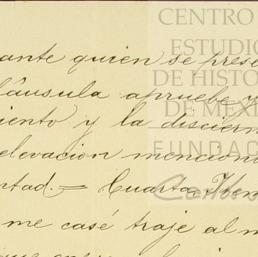 ante quien se prese
láusula apruebe y
iento y la discierna
elevacion menciona
ntad.= Cuarta. Item
me casé traje al m
CENTRO
ESTUDIO
DE HISTO
DE MÉXI
FUNDAC
Carlos